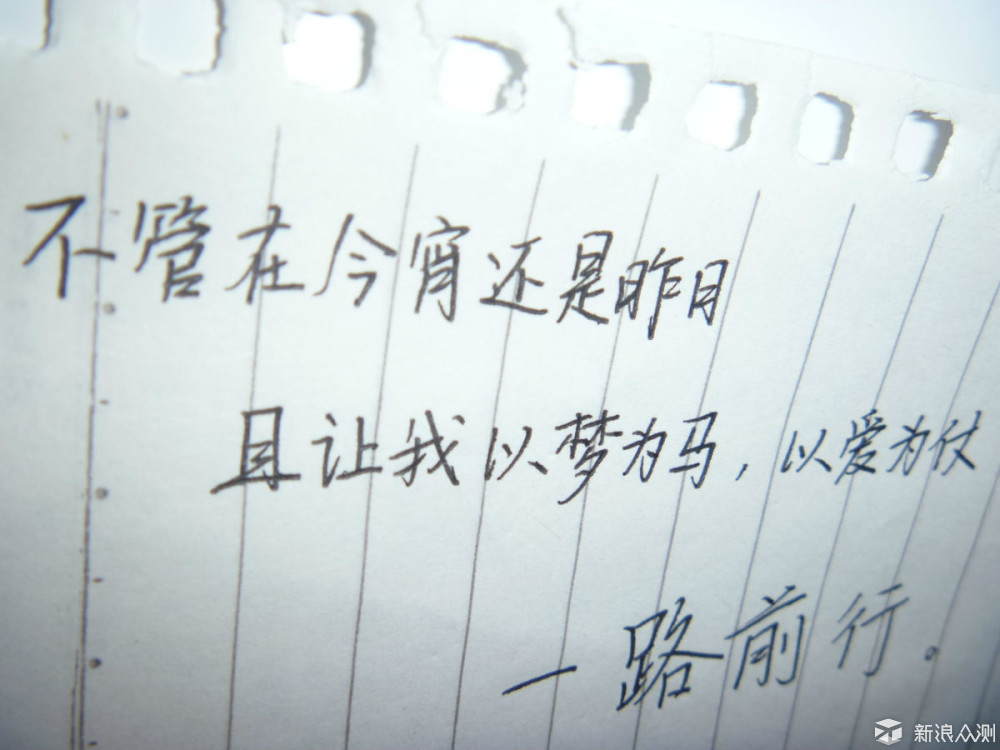 不管在今宵还是昨日
且让我以梦为马，以爱为仗
一路前行。
新浪众测